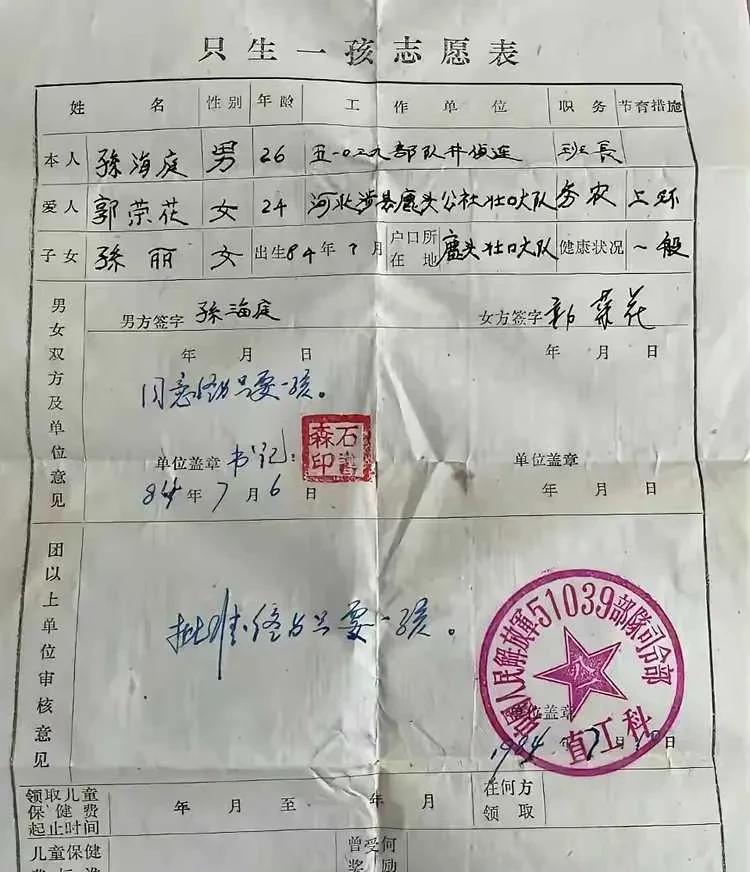 只生一孩志愿表
姓名 性别 年龄 工作单位 职务 节育措施
本人 孙海庭 男 26 五一〇三九部队 侦连 班长
爱人 郭荣花 女 24 河北涉县鹿头公社壮口大队 务农 上环
子女 孙丽 女 出生84年7月 户口所在地 鹿头壮口大队 健康状况 一般
男女双方及单位意见
男方签字 孙海庭 女方签字 郭荣花
年 月 日 年 月 日
同意终身只要一孩。
单位盖章 书记: 单位盖章
石 森印
84年7月6日 年 月 日
团以上单位审核意见
批准终身只要一孩。
中国人民解放軍51039部隊司令部
直工科
单位盖章
1984年7月 日
领取儿童保健费起止时间 年 月 至 年 月 在何方领取
儿童保健 曾受何
奖励